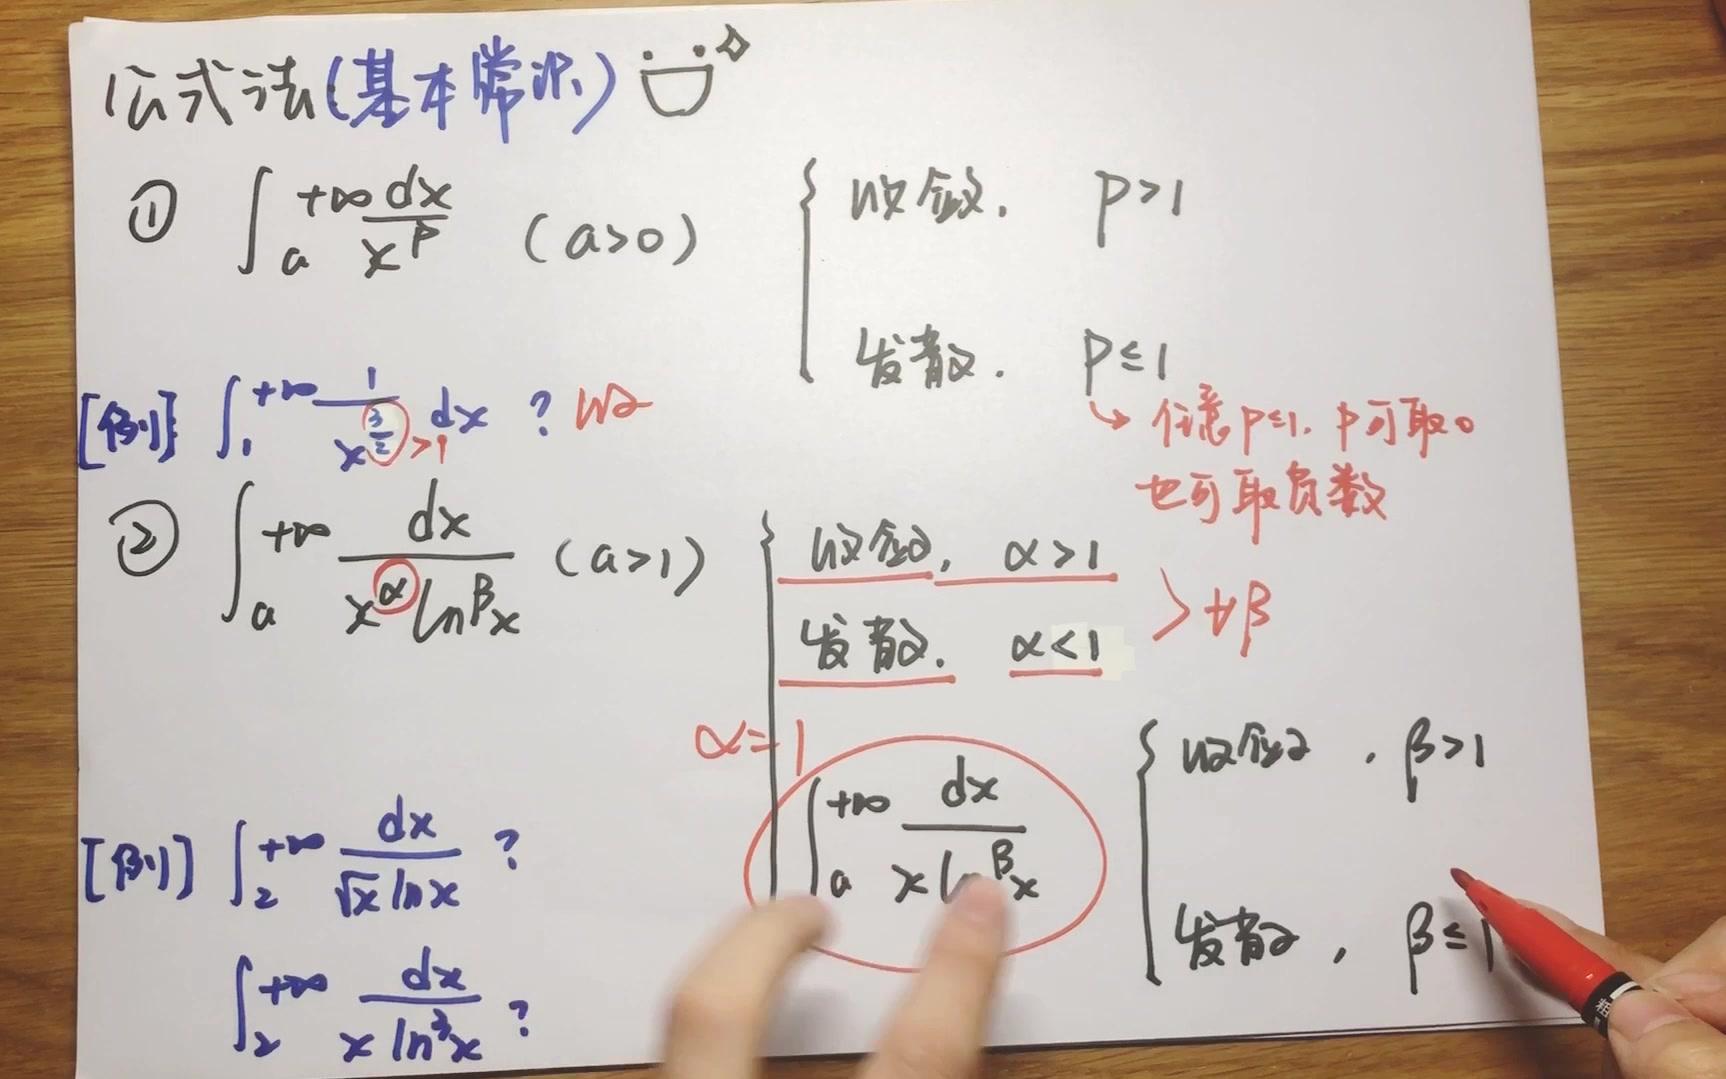 公式法(基本常识)
① ∫_a^{+∞} dx/x^p (a>0) { 收敛, p>1
发散. p≤1
→ 任意p≤1. p可取0
也可取负数
[例] ∫_1^{+∞} 1/x^{3/2} dx ? >1 收
② ∫_a^{+∞} dx/(x^α ln^β x) (a>1) { 收敛, α>1
发散. α<1
> ∀β
α=1
∫_a^{+∞} dx/(x ln^β x) { 收敛, β>1
发散, β≤1
[例] ∫_2^{+∞} dx/(√x ln x) ?
∫_2^{+∞} dx/(x ln^3 x) ?
粗